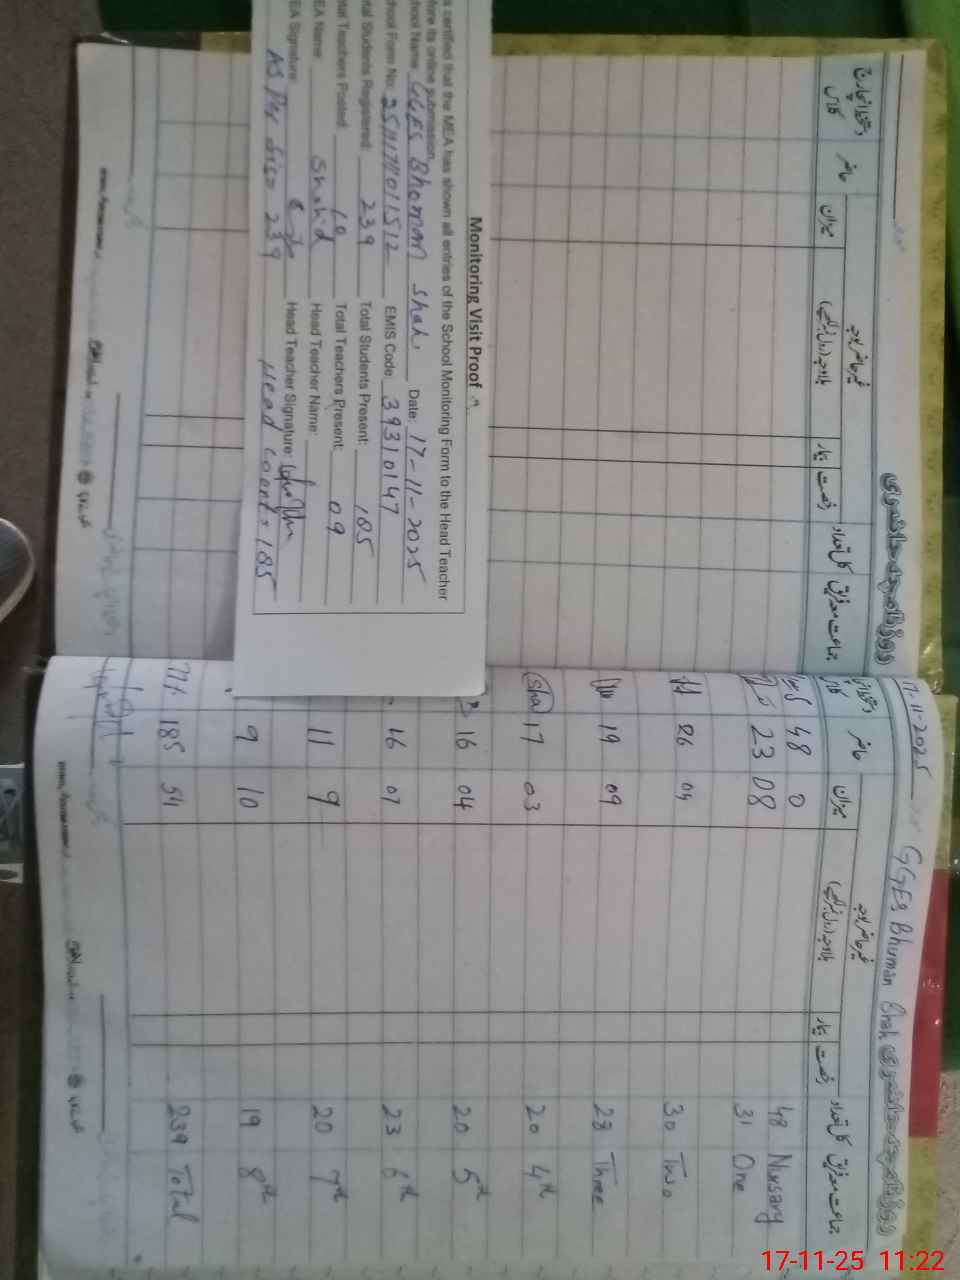 Monitoring Visit Proof
certified that the MEA has shown all entries of the School Monitoring Form to the Head Teacher
its online submission.
Name: GGES Bhoman Shah Date: 17-11-2025
Form No: EMIS Code: 39310147
Students Registered: 239 Total Students Present: 185
Teachers Posted: 10 Total Teachers Present: 09
Name: Shahid Head Teacher Name:
Signature: Head Teacher Signature:
As Per sis= 239 Head Count = 185
روزنامچہ حاضری
جماعت معہ فریق
کل تعداد
رخصت
بیمار
غیر حاضر بلاوجہ
میزان
حاضر
17-11-2025 GGES Bhuman Shah روزنامچہ حاضری
جماعت معہ فریق
کل تعداد
رخصت
بیمار
غیر حاضر بلاوجہ
میزان
حاضر
48 0 48 Nursary
23 08 31 One
26 04 30 Two
19 09 28 Three
Sha 17 03 20 4th
16 04 20 5th
16 07 23 6th
11 9 20 7th
9 10 19 8th
77% 185 54 239 Total
17-11-25 11:22